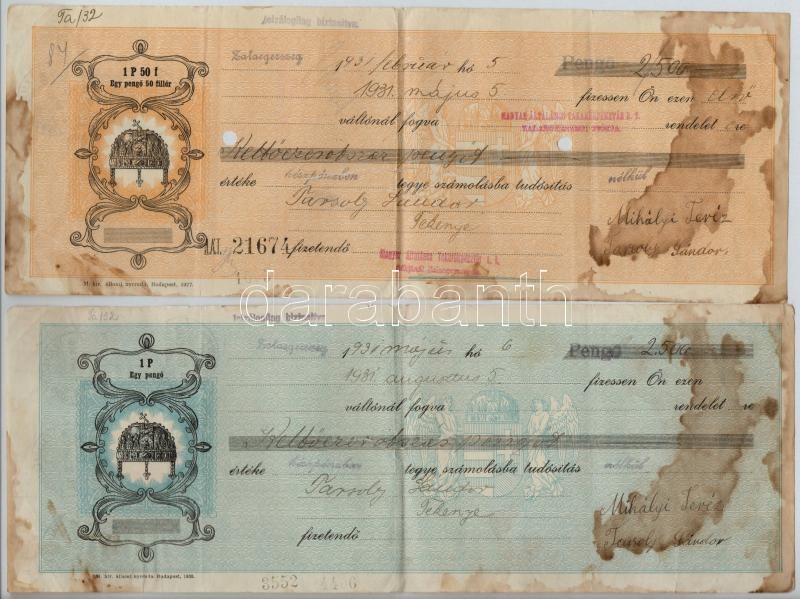 Ta/32
jelzálogilag biztosítva.
84/
Zalaegerszeg 1931 február hó 5 Pengő 2.500
1 P 50 f
Egy pengő 50 fillér
1931. május 5 fizessen Ön ezen első
MAGYAR ÁLTALÁNOS TAKARÉKPÉNZTÁR R. T.
váltónál fogva rendelet re
pengőt
értéke készpénzben tegye számolásba tudósítás nélkül
Tarsoly Sándor
Pekenye
Mihályi Teréz
Tarsoly Sándor
AAI. 21674 fizetendő
Magyar Általános Takarékpénztár r. t.
M. kir. állami nyomda. Budapest, 1927.
darabanth
Ta/32
jelzálogilag biztosítva
Zalaegerszeg 1931 május hó 6 Pengő 2.500
1 P
Egy pengő
1931. augusztus 5. fizessen Ön ezen
váltónál fogva rendelet re
értéke készpénzben tegye számolásba tudósítás nélkül
Tarsoly Sándor
Pekenye
Mihályi Teréz
Tarsoly Sándor
fizetendő
M. kir. állami nyomda. Budapest,
3552